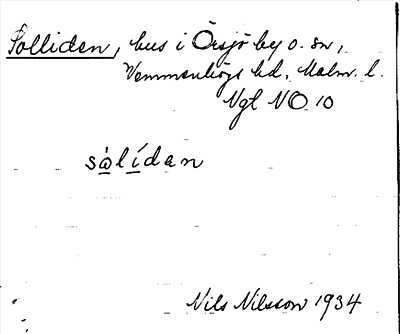 Solliden, hus i Örsjö by o. sn,
Vemmenhögs hd, Malm. l.
Ngt NO 10
sòlídan
Nils Nilsson 1934